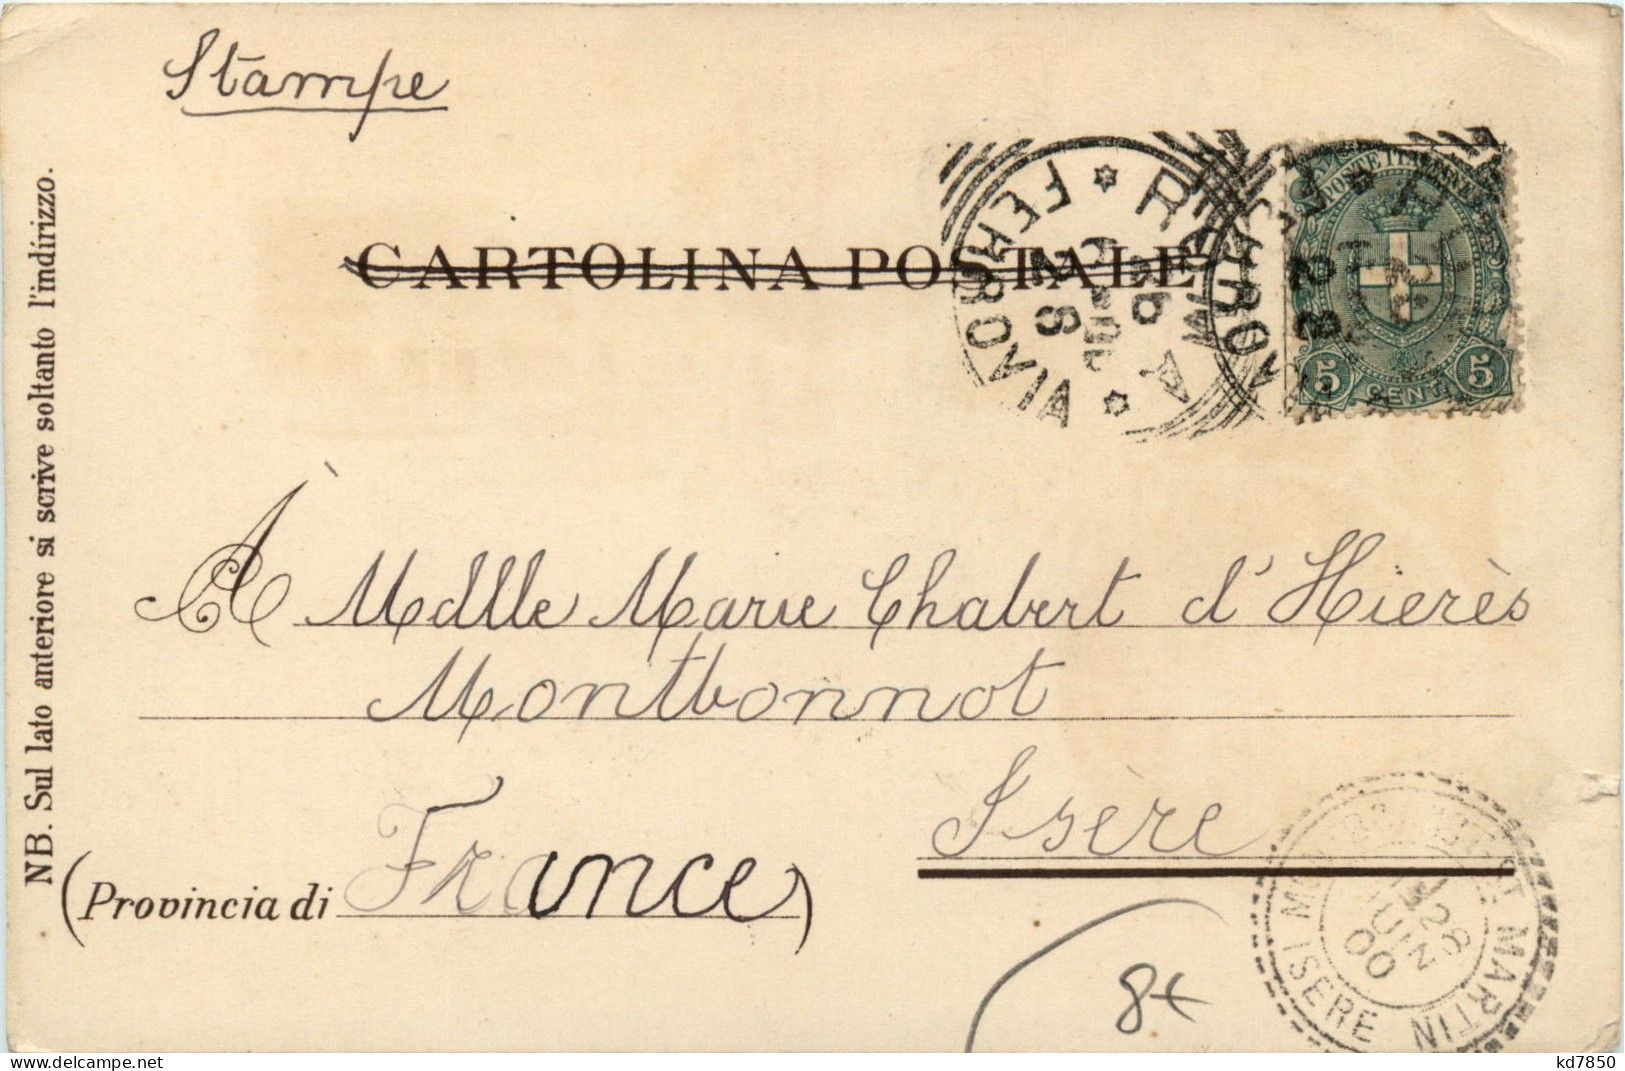 Stampe
CARTOLINA POSTALE
POSTE ITALIANE
5 CENT. 5
FERROVIA
28
FERROVIA
28
À Mdlle Marie Chabert d'Hierès
Montbonnot
Isère
(Provincia di France)
NB. Sul lato anteriore si scrive soltanto l'indirizzo.
MARTIN
ISERE
29
JUIN
00
8€
delcampe.net
kd7850